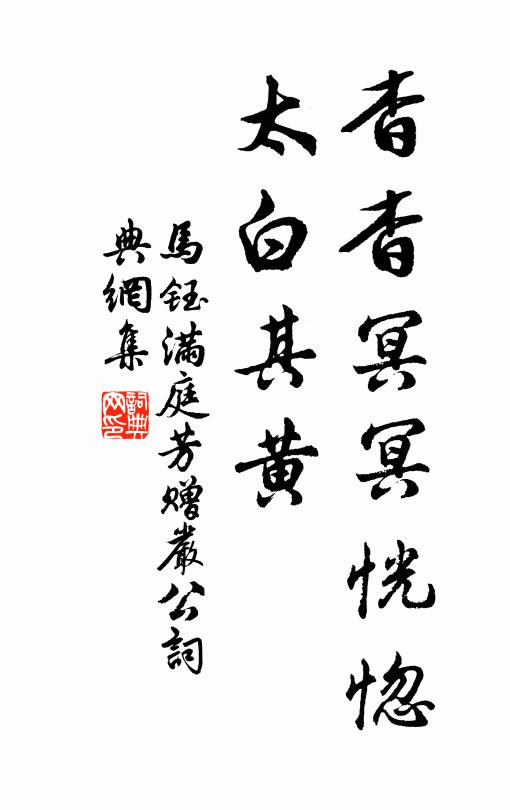 杳杳冥冥恍惚
太白其黄
馬鈺滿庭芳贈嚴公詞
典網集
詞典网印